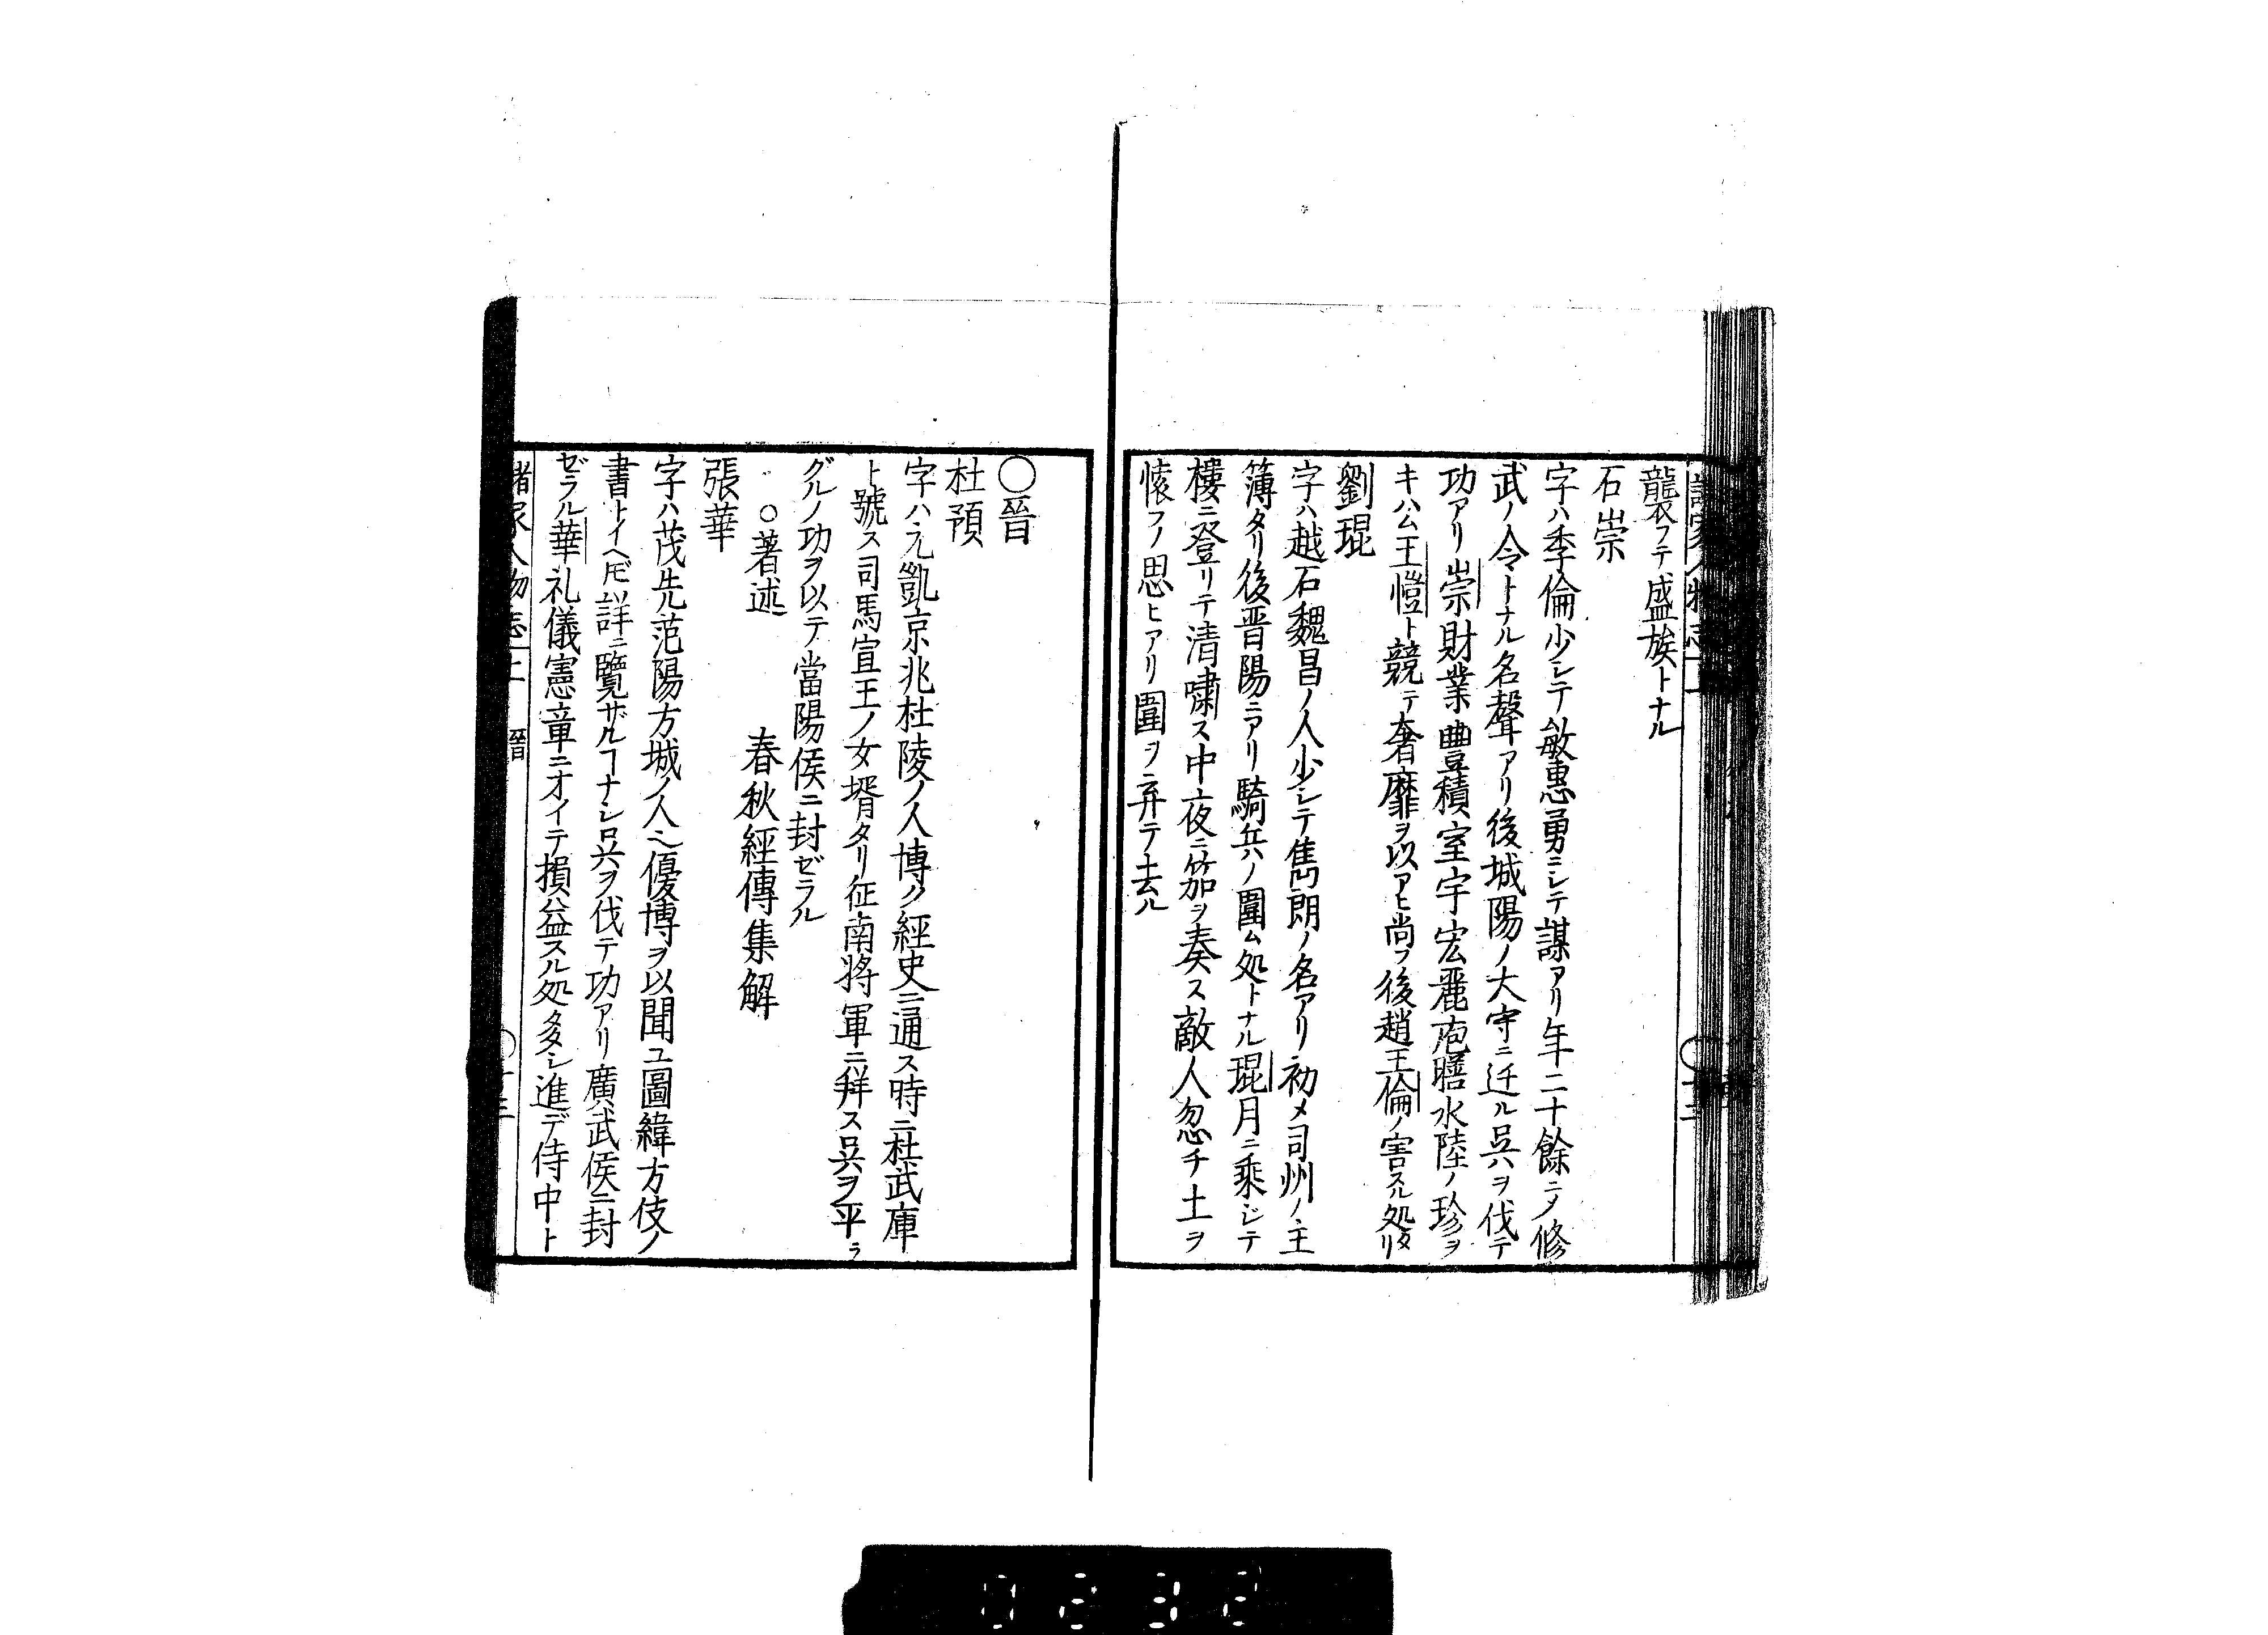 襲フテ盛族トナル
石崇
字ハ季倫少シテ敏惠勇ニシテ謀アリ年二十餘ニメ修
武ノ令トナル名聲アリ後城陽ノ大守ニ迁ル呉ヲ伐テ
功アリ崇財業豊積室宇宏麗庖膳水陸ノ珍ヲ
キハム王愷ト競テ奢靡ヲ以アヒ尚フ後趙王倫ノ害スル処タリ
劉琨
字ハ越石魏昌ノ人少シテ雋朗ノ名アリ初メ司州ノ主
簿タリ後晋陽ニアリ騎兵ノ圍ム処トナル琨月ニ乘ジテ
樓ニ登リテ清嘯ス中夜ニ笳ヲ奏ス敵人忽チ土ヲ
懐フノ思ヒアリ圍ヲ弃テ去ル
〇晉
杜預
字ハ元凱京兆杜陵ノ人博ク經史ニ通ス時ニ杜武庫
ト號ス司馬宣王ノ女壻タリ征南將軍ニ拜ス呉ヲ平ラ
グルノ功ヲ以テ當陽侯ニ封ゼラル
〇著述 春秋經傳集解
張華
字ハ茂先范陽方城ノ人也優博ヲ以聞ユ圖緯方伎ノ
書トイヘ𪜈詳ニ覽ザルヿナシ呉ヲ伐テ功アリ廣武侯ニ封
ゼラル華礼儀憲章ニオイテ損益スル処多シ進デ侍中ト
諸家人物志上 晉 〇十三